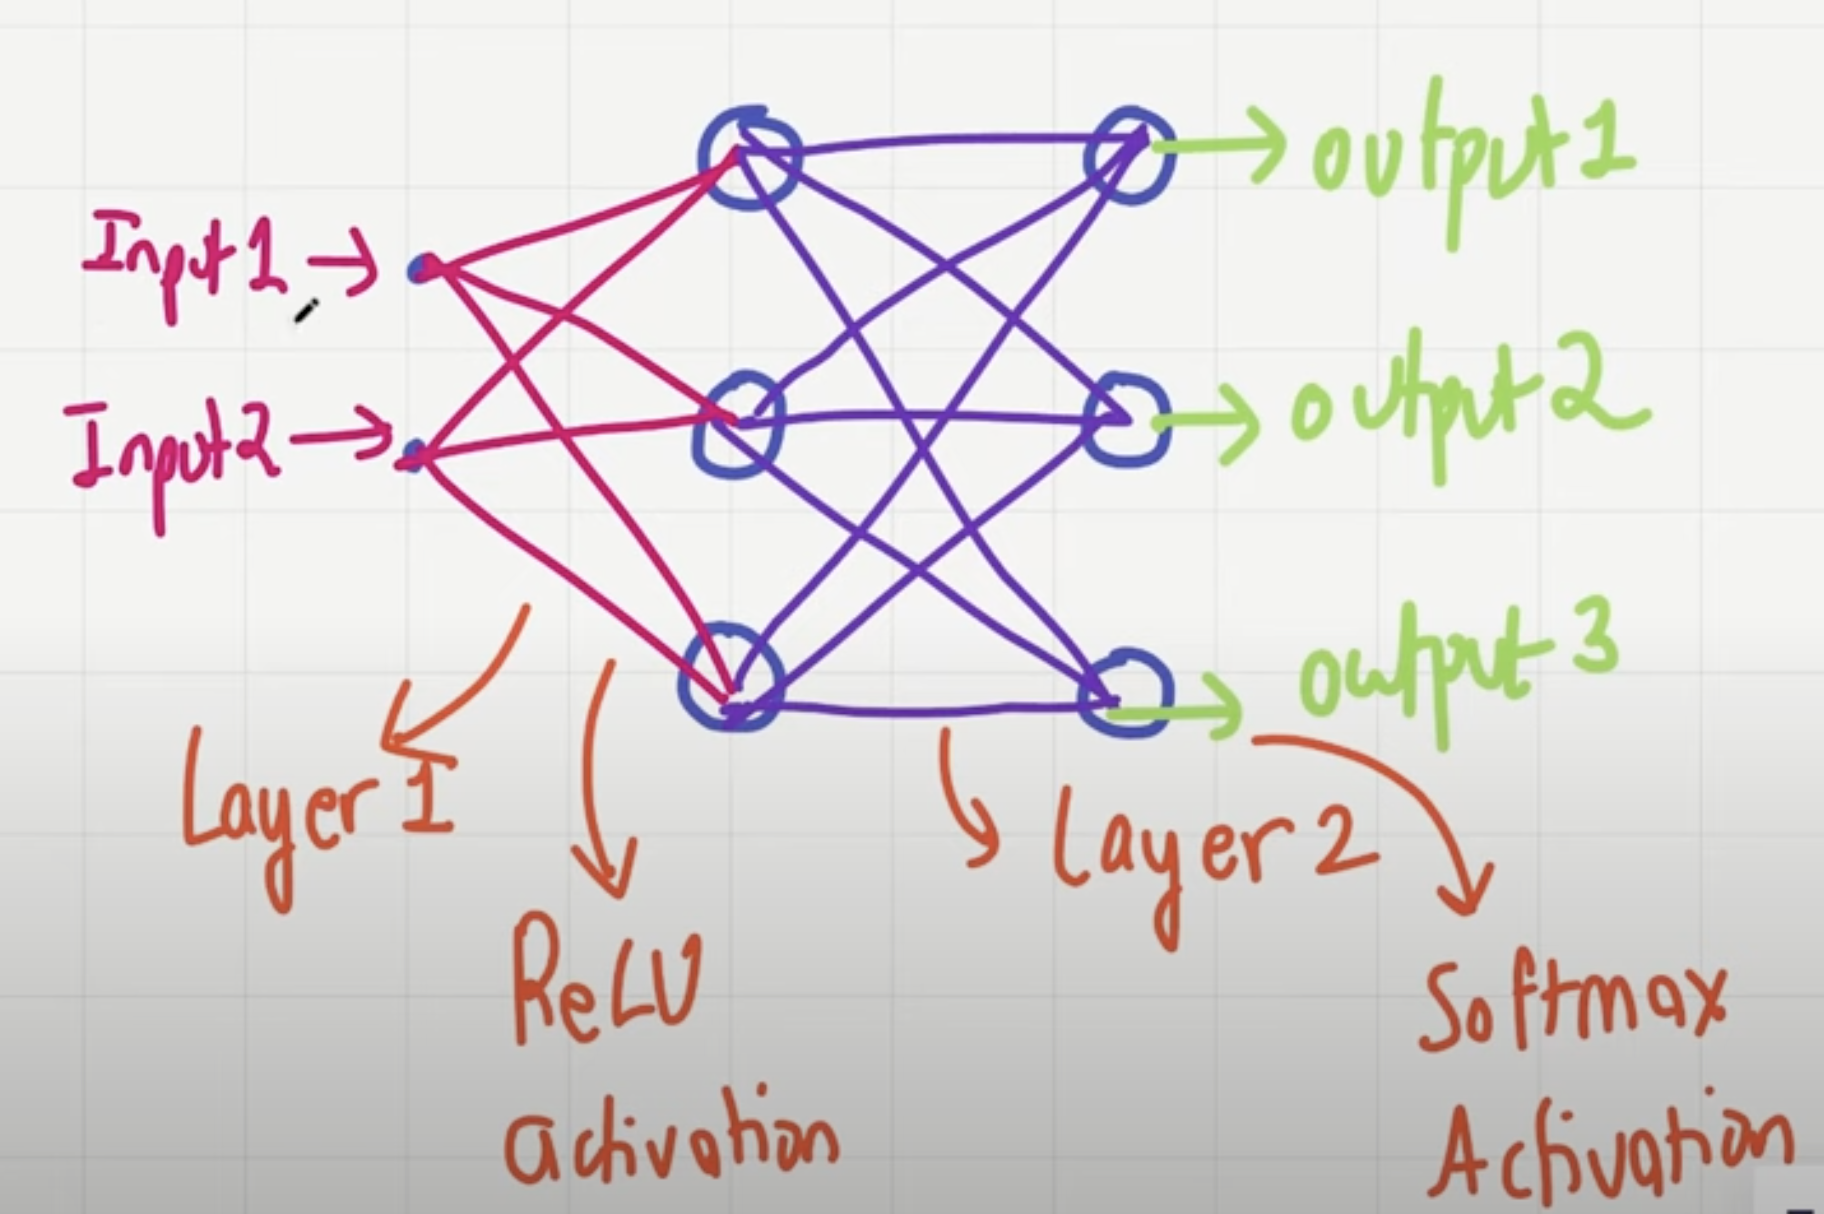 Input1
Input2
output1
output2
output3
Layer 1
ReLU
activation
Layer 2
Softmax
Activation